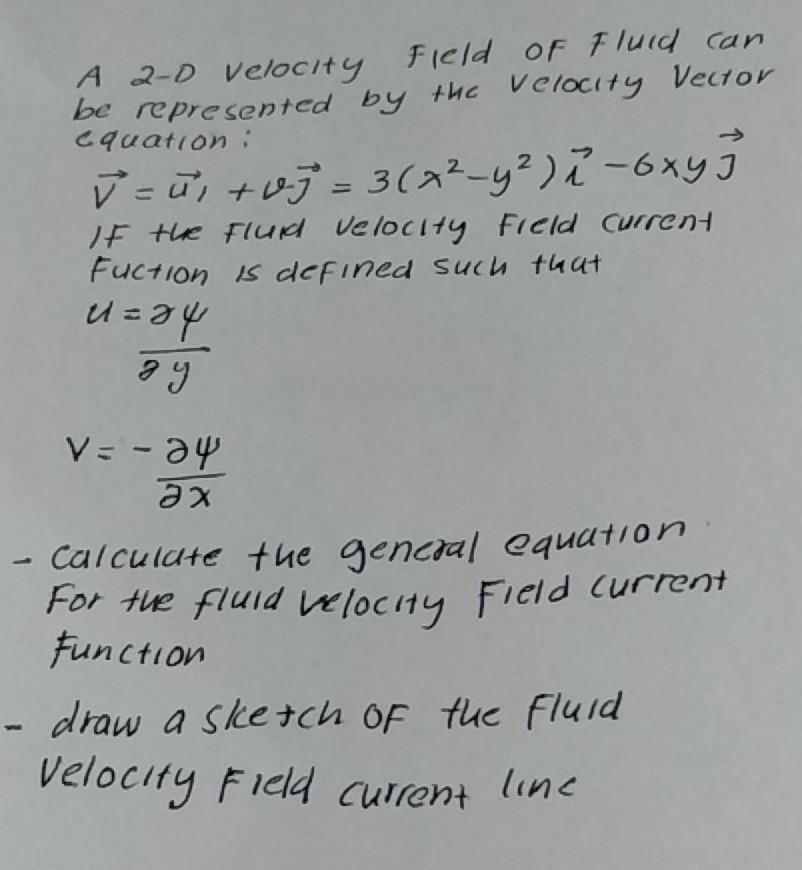 A 2-D Velocity Field OF Fluid can
be represented by the Velocity Vector
equation:
V⃗ = u⃗, + vj⃗ = 3(x²-y²)i⃗ -6xyj⃗
IF the Fluid Velocity Field Current
Fuction is defined such that
u = ∂ψ/∂y
V = - ∂ψ/∂x
- calculate the general equation
For the fluid velocity Field current
Function
- draw a sketch OF the Fluid
Velocity Field current line